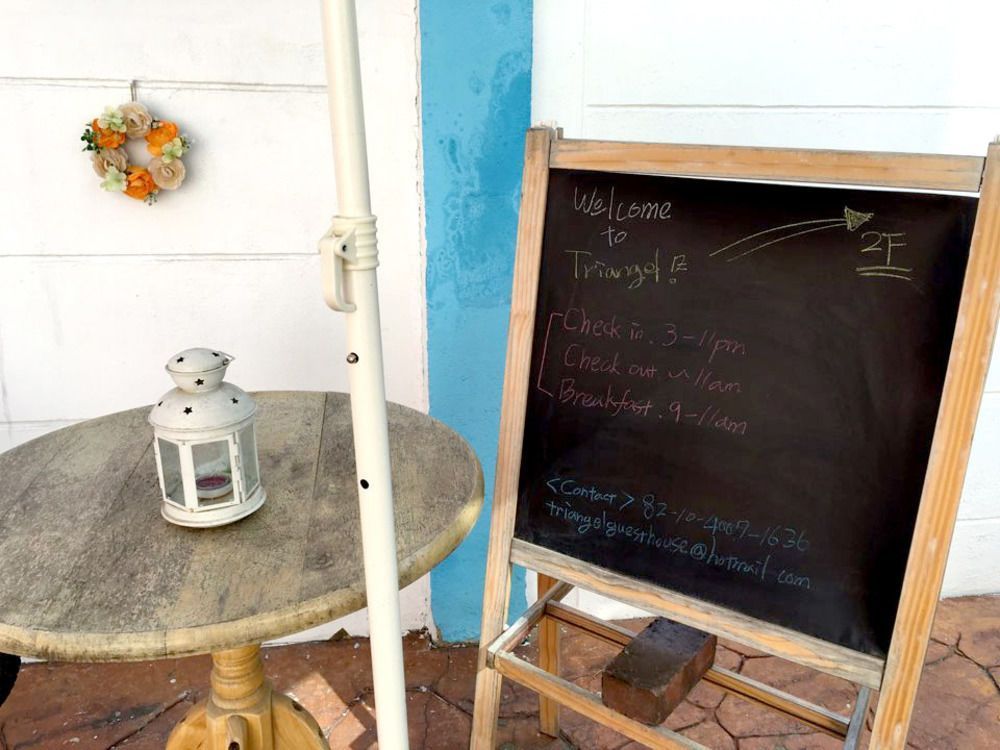 Welcome
to
Triangel!
2F
Check in. 3-11pm
Check out ~ 11am
Breakfast. 9-11am
<Contact> 82-10-4007-1636
triangelguesthouse@hotmail com